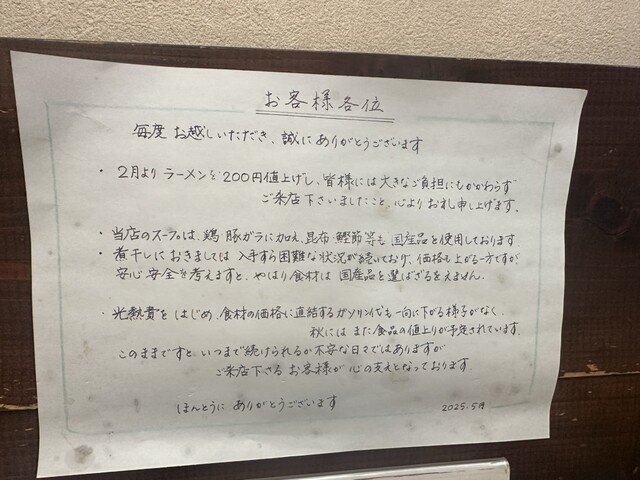 お客様各位
毎度 お越しいただき、誠に ありがとうございます
・ 2月より ラーメンを 200円値上げし、皆様には 大きなご負担にもかかわらず
ご来店下さいましたこと、心より お礼申し上げます。
・ 当店のスープは、鶏・豚ガラに加え、昆布・鰹節等も 国産品を使用しております。
・ 煮干しに おきましては 入手すら困難な状況が続いており、価格も上がる一方ですが
安心・安全を考えますと、やはり食材は 国産品を選ばざるをえません。
・ 光熱費を はじめ、食材の価格に直結するガソリン代も一向に下がる様子がなく、
秋には また食品の値上りが予定されています。
このままですと、いつまで続けられるか不安な日々ではありますが
ご来店下さる お客様が 心の支えとなっております。
ほんとうに ありがとうございます
2025.5月